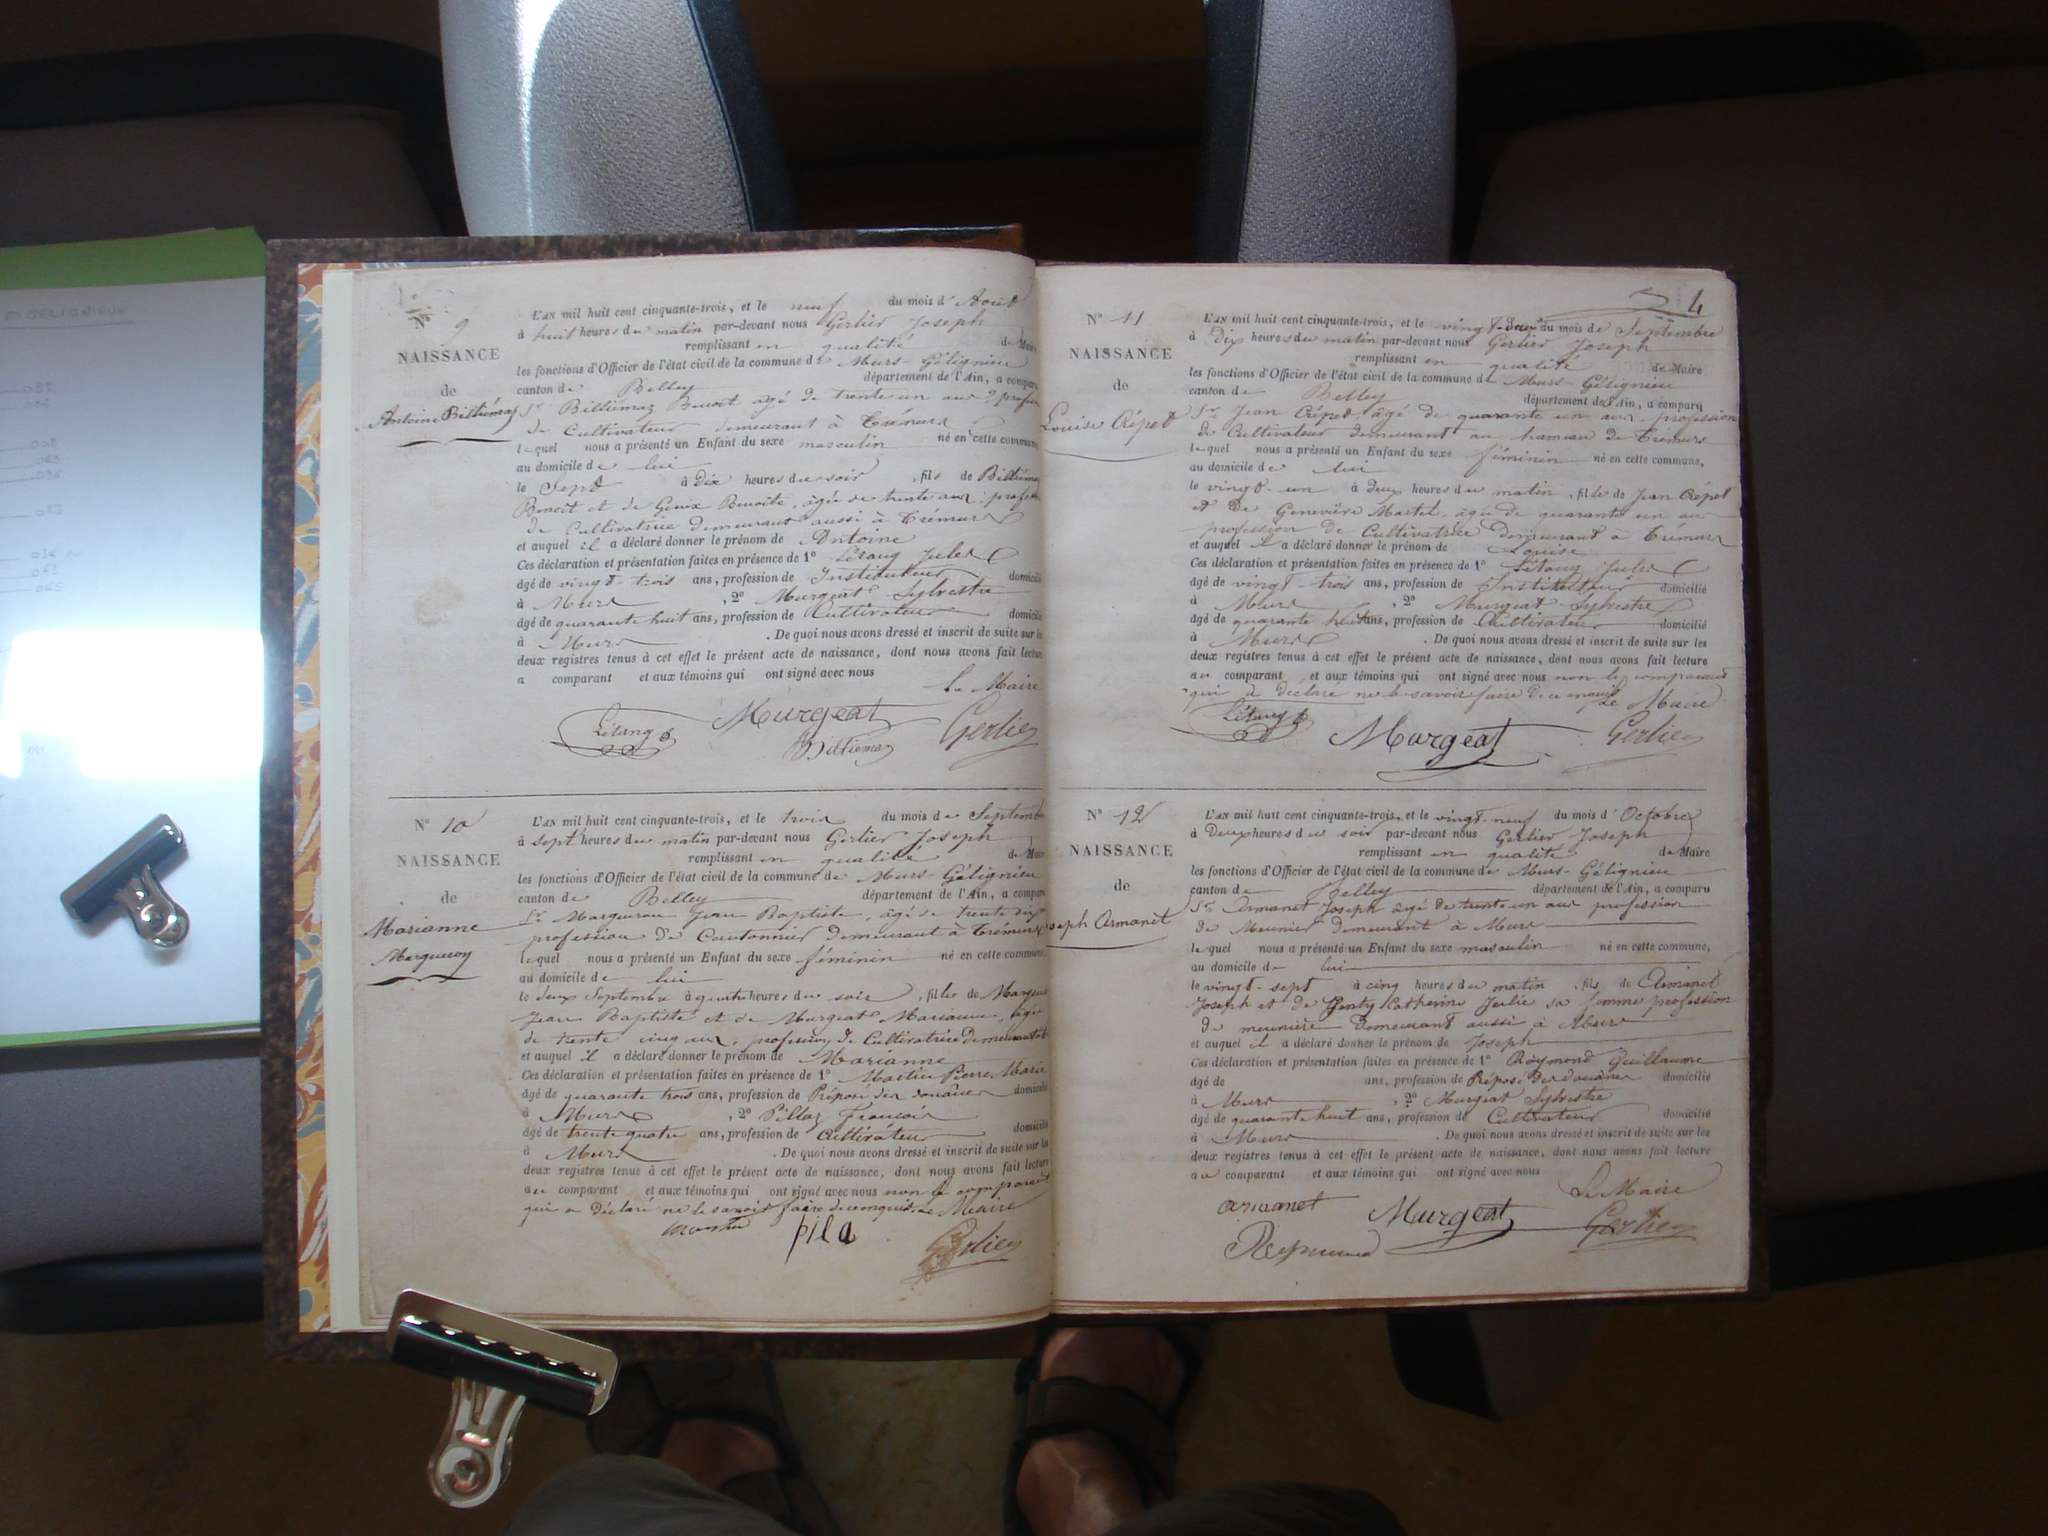 9
NAISSANCE
de
Antoine Billiémaz
L'AN mil huit cent cinquante-trois, et le neuf du mois d'Août
à huit heures du matin par-devant nous Gerlier Joseph
remplissant en qualité de Maire
les fonctions d'Officier de l'état civil de la commune de Murs-Gélignieu
canton de Belley département de l'Ain, a comparu
Sr Billiémaz Benoit âgé de trente un ans profession
de Cultivateur demeurant à Trémurs
lequel nous a présenté un Enfant du sexe masculin né en cette commune,
au domicile de lui
le Sept à dix heures du soir, fils de Billiémaz
Benoit et de Benoîte, âgée de trente ans, profession
de Cultivatrice demeurant aussi à Trémurs
et auquel il a déclaré donner le prénom de Antoine
Ces déclaration et présentation faites en présence de 1° Létang Jules
âgé de vingt-trois ans, profession de Instituteur domicilié
à Murs, 2° Murgeat Sylvestre
âgé de quarante huit ans, profession de Cultivateur domicilié
à Murs. De quoi nous avons dressé et inscrit de suite sur les
deux registres tenus à cet effet le présent acte de naissance, dont nous avons fait lecture
a comparant et aux témoins qui ont signé avec nous
Le Maire
Létang Murgeat Gerlier
Billiemaz
N° 10
NAISSANCE
de
Marianne
Margueron
L'AN mil huit cent cinquante-trois, et le trois du mois de Septembre
à sept heures du matin par-devant nous Gerlier Joseph
remplissant en qualité de Maire
les fonctions d'Officier de l'état civil de la commune de Murs-Gélignieu
canton de Belley département de l'Ain, a comparu
Sr Margueron Jean Baptiste, âgé de trente
profession de Cantonnier demeurant à Trémurs
lequel nous a présenté un Enfant du sexe féminin né en cette commune,
au domicile de lui
le deux Septembre à quatre heures du soir, fille de Margueron
Jean Baptiste et de Murgeat Marianne, âgée
de trente cinq ans, profession de Cultivatrice demeurant
et auquel il a déclaré donner le prénom de Marianne
Ces déclaration et présentation faites en présence de 1° Martin Pierre Marie
âgé de quarante trois ans, profession de Préposé des douânes domicilié
à Murs, 2° Pillaz François
âgé de trente quatre ans, profession de Cultivateur domicilié
à Murs. De quoi nous avons dressé et inscrit de suite sur les
deux registres tenus à cet effet le présent acte de naissance, dont nous avons fait lecture
au comparant et aux témoins qui ont signé avec nous non le comparant
qui a déclaré ne le savoir faire de ce enquis. Le Maire
Martin pila Gerlier
4
N° 11
NAISSANCE
de
Louise Crépet
L'AN mil huit cent cinquante-trois, et le vingt-deux du mois de Septembre
à Dix heures du matin par-devant nous Gerlier Joseph
remplissant en qualité de Maire
les fonctions d'Officier de l'état civil de la commune de Murs-Gélignieu
canton de Belley département de l'Ain, a comparu
Sr Jean Crépet, âgé de quarante un ans, profession
de Cultivateur demeurant au hameau de Trémurs
lequel nous a présenté un Enfant du sexe féminin né en cette commune,
au domicile de lui
le vingt-un à deux heures du matin, fille de Jean Crépet
et de Geneviève Martel âgée de quarante un ans
profession de Cultivatrice demeurant à Trémurs
et auquel il a déclaré donner le prénom de Louise
Ces déclaration et présentation faites en présence de 1° Létang Jules
âgé de vingt-trois ans, profession de Instituteur domicilié
à Murs, 2° Murgeat Sylvestre
âgé de quarante huit ans, profession de Cultivateur domicilié
à Murs. De quoi nous avons dressé et inscrit de suite sur les
deux registres tenus à cet effet le présent acte de naissance, dont nous avons fait lecture
au comparant et aux témoins qui ont signé avec nous non le comparant
qui a déclaré ne le savoir faire de ce enquis Le Maire
Létang Murgeat Gerlier
N° 12
NAISSANCE
de
Joseph Armanet
L'AN mil huit cent cinquante-trois, et le vingt-neuf du mois d'Octobre
à Deux heures du soir par-devant nous Gerlier Joseph
remplissant en qualité de Maire
les fonctions d'Officier de l'état civil de la commune de Murs-Gélignieu
canton de Belley département de l'Ain, a comparu
Sr Armanet Joseph âgé de trente un ans profession
de Meunier demeurant à Murs
lequel nous a présenté un Enfant du sexe masculin né en cette commune,
au domicile de lui
le vingt-sept à cinq heures du matin, fils de Armanet
Joseph et de Genty Catherine Julie sa femme profession
de meunière demeurant aussi à Murs
et auquel il a déclaré donner le prénom de Joseph
Ces déclaration et présentation faites en présence de 1° Raymond Guillaume
âgé de ans, profession de Préposé des douânes domicilié
à Murs, 2° Murgeat Sylvestre
âgé de quarante huit ans, profession de Cultivateur domicilié
à Murs. De quoi nous avons dressé et inscrit de suite sur les
deux registres tenus à cet effet le présent acte de naissance, dont nous avons fait lecture
au comparant et aux témoins qui ont signé avec nous
Le Maire
armanet Murgeat Gerlier
Raymond